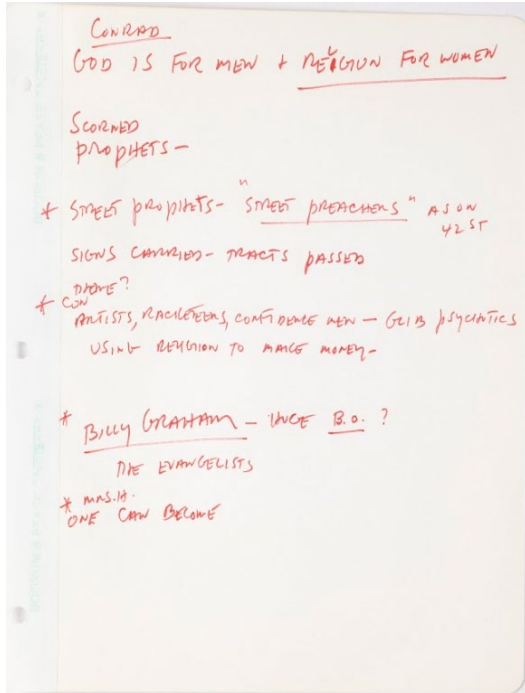 CONRAD
GOD IS FOR MEN + RELIGION FOR WOMEN
SCORNED
PROPHETS -
* STREET PROPHETS - "STREET PREACHERS" AS ON
42 ST
SIGNS CARRIED - TRACTS PASSED
* CON
ARTISTS, RACKETEERS, CONFIDENCE MEN - GLIB PSYCHOTICS
USING RELIGION TO MAKE MONEY -
* BILLY GRAHAM - HUGE B.O. ?
THE EVANGELISTS
* MRS. H.
ONE CAN BECOME